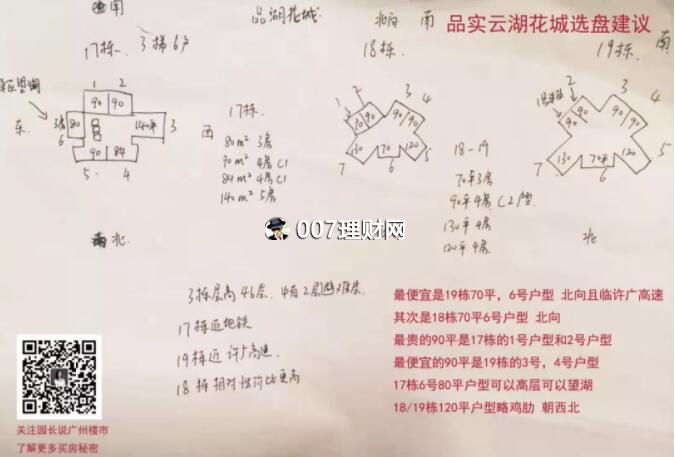 南
品湖花城
北向 南
品实云湖花城选盘建议
17栋 3梯6户
18栋
19栋 南
1 2
90 90
东
3房 80
6
140平
3
90 84
5 4
西
17栋
80m² 3房
90m² 4房 C1
84m² 4房 C1
140m² 5房
1 2 3 4
30 90 90 90
130 70 120
7 6 5
18-19
70平3房
90平4房 C2户型
130平4房
120平4房
2 3 4
90 90 90 90
130 70平 120
7 6 5
北
北
007理财网
3栋层高46层. 中有2层避难层.
17栋近地铁
19栋近许广高速.
18栋相对性价比更高
最便宜是19栋70平，6号户型 北向且临许广高速
其次是18栋70平6号户型 北向
最贵的90平是17栋的1号户型和2号户型
最便宜的90平是19栋的3号，4号户型
17栋6号80平户型可以高层可以望湖
18/19栋120平户型略鸡肋 朝西北
关注园长说广州楼市
了解更多买房秘密